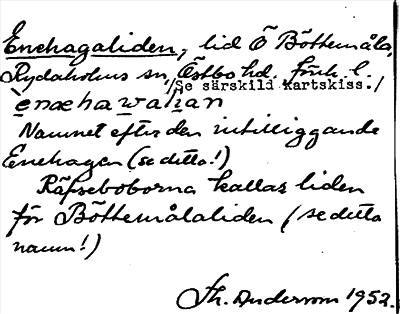 Enehagaliden, lid Ö Böttemåla,
Rydaholms sn, Östbo hd. Jönk. l.
/Se särskild kartskiss./
enæhawalian
Namnet efter den intilliggande
Enehagen (se detta!)
Räfseboborna kallas liden
för Böttemålaliden (se detta
namn!)
Th. Anderson 1952.